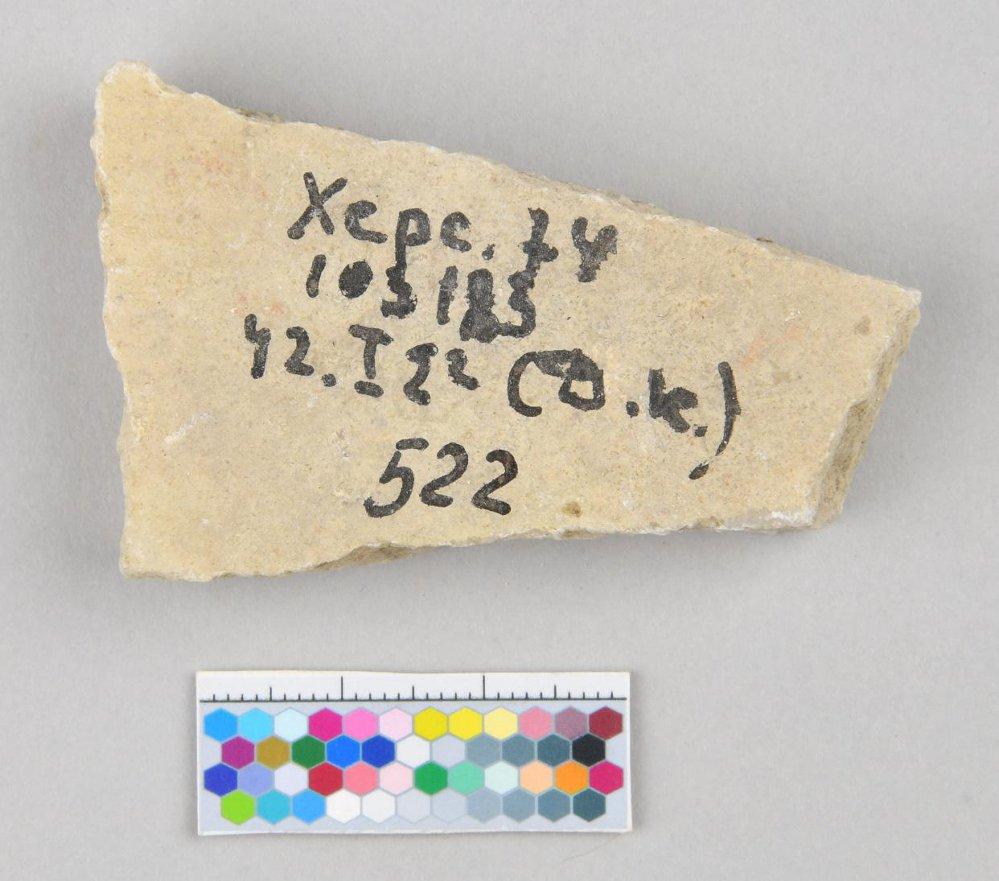 Херс. 74
103183
42. I 22 (Ф.к.)
522